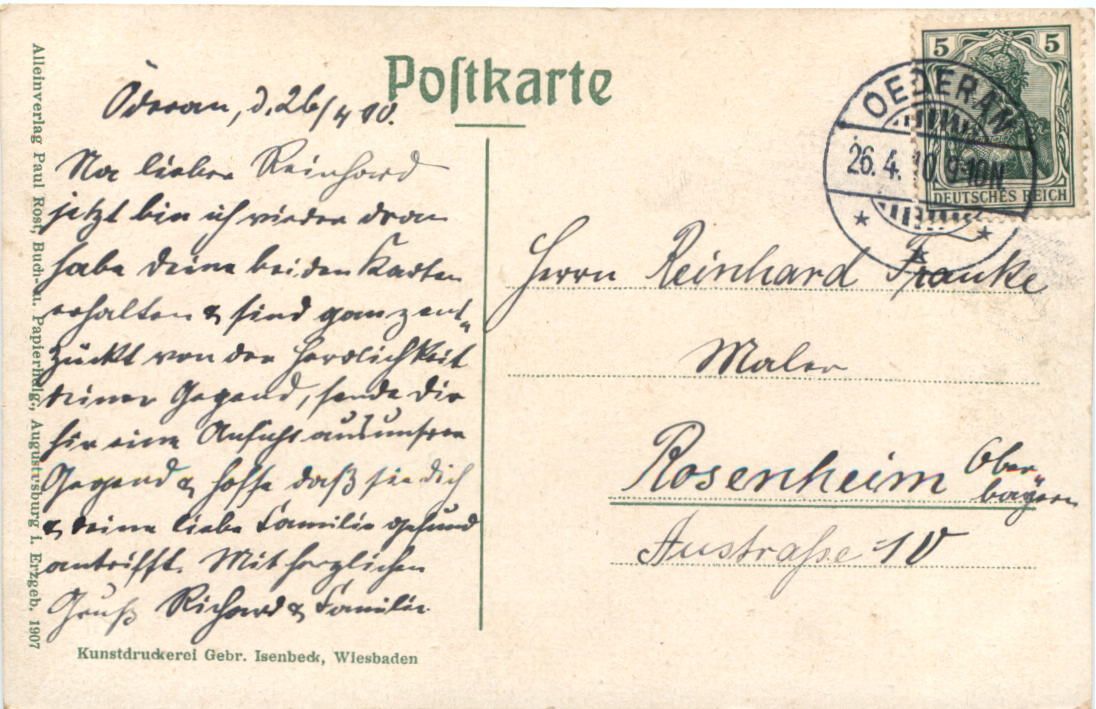 Postkarte
Öderan, d. 26/4 10.
Na lieber Reinhard
jetzt bin ich wieder dran
habe deine beiden Karten
erhalten & sind ganz ent-
zückt von der Herrlichkeit
deiner Gegend, sende dir
hir eine Ansicht aus unsrer
Gegend & hoffe daß sie dich
& deine liebe Familie gesund
antrifft. Mit herzlichen
Gruß Richard & Familie
Kunstdruckerei Gebr. Isenbeck, Wiesbaden
Alleinverlag Paul Rost, Buch- u. Papierhdlg., Augustusburg i. Erzgeb. 1907
5 5
DEUTSCHES REICH
OEDERAN
26.4.10.9-10N
Herrn Reinhard Franke
Maler
Rosenheim Ober-
bayern
Austraße